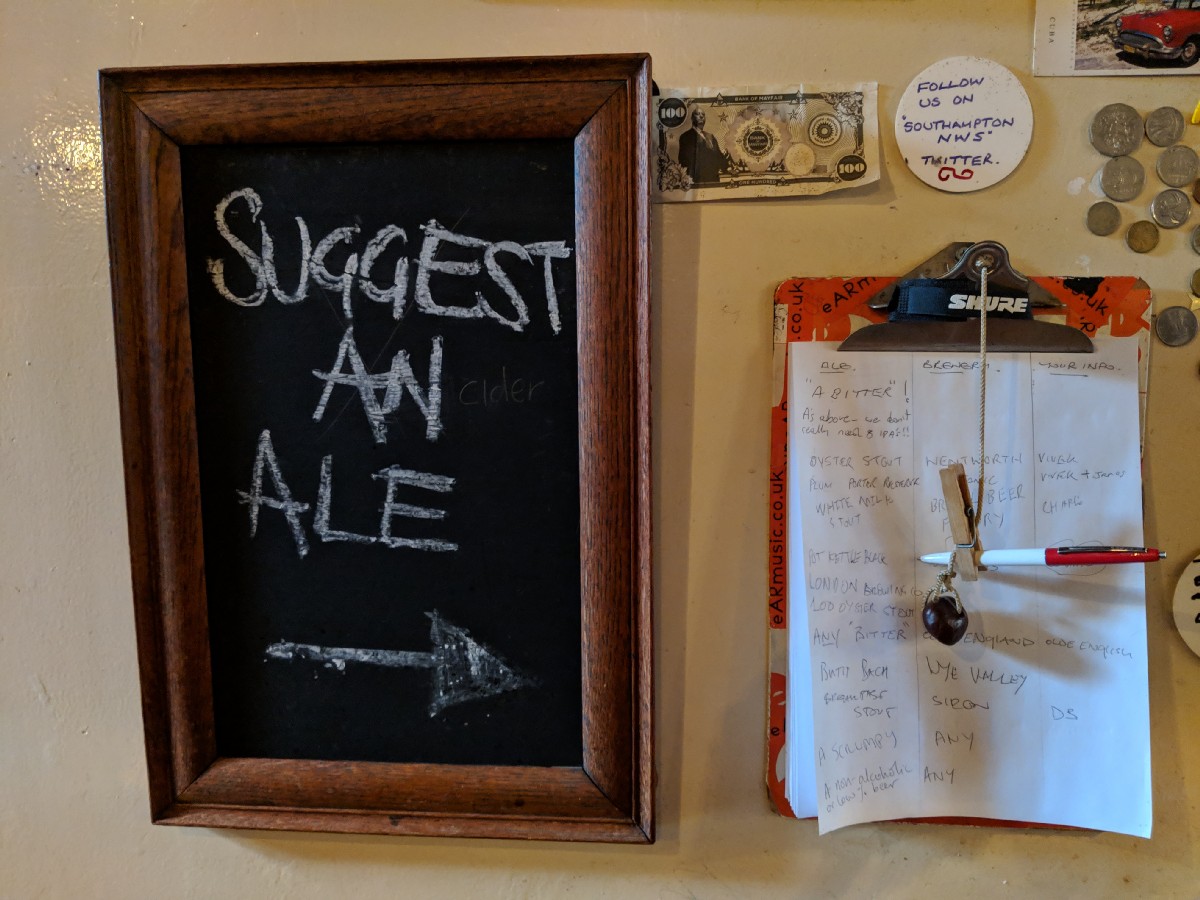 SUGGEST
AN
cider
ALE
100
BANK OF MAYFAIR
ONE HUNDRED
100
FOLLOW
US ON
"SOUTHAMPTON
NWS"
TWITTER.
CUBA
eARmusic.co.uk
SHURE
ALE. BREWERY. YOUR INFO.
"A BITTER"!
As above - we don't
really need 8 IPAs!!
OYSTER STOUT WENTWORTH
PLUM PORTER
WHITE MILK BEER
STOUT
POT KETTLE BLACK
LONDON BREWING CO
OYSTER STOUT
ANY "BITTER" ENGLAND OLDE ENGLISH
BUTTY BACH WYE VALLEY
BREAKFAST SIREN
STOUT DS
A SCRUMPY ANY
A non-alcoholic ANY
or low % beer